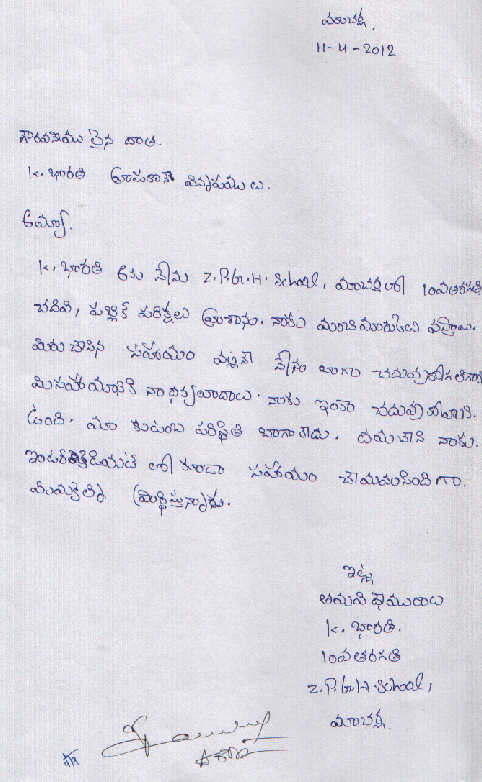 మాచర్ల.
11-4-2012
గౌరవనీయులైన దాత.
K. భారతి వ్రాయునది విన్నపములు.
అమ్మా.
K. భారతి అను నేను Z.P.G.H. School, మాచర్ల లో 10వ తరగతి
చదివి, పబ్లిక్ పరీక్షలు వ్రాశాను. నాకు మంచి మార్కులు వస్తాయి.
మీరు చేసిన సహాయం వల్లనే నేను బాగా చదువుకోగలిగాను
మీ సహాయానికి నా ధన్యవాదాలు. నాకు ఇంకా చదువుకోవాలని
ఉంది. మా కుటుంబ పరిస్థితి బాగాలేదు. దయచేసి నాకు.
ఇంటర్మీడియట్ లో కూడా సహాయం చేయవలసిందిగా.
మిమ్మల్ని ప్రార్థిస్తున్నాను.
ఇట్లు
తమరి
K. భారతి.
10వ తరగతి
Z.P.G.H School,
మాచర్ల